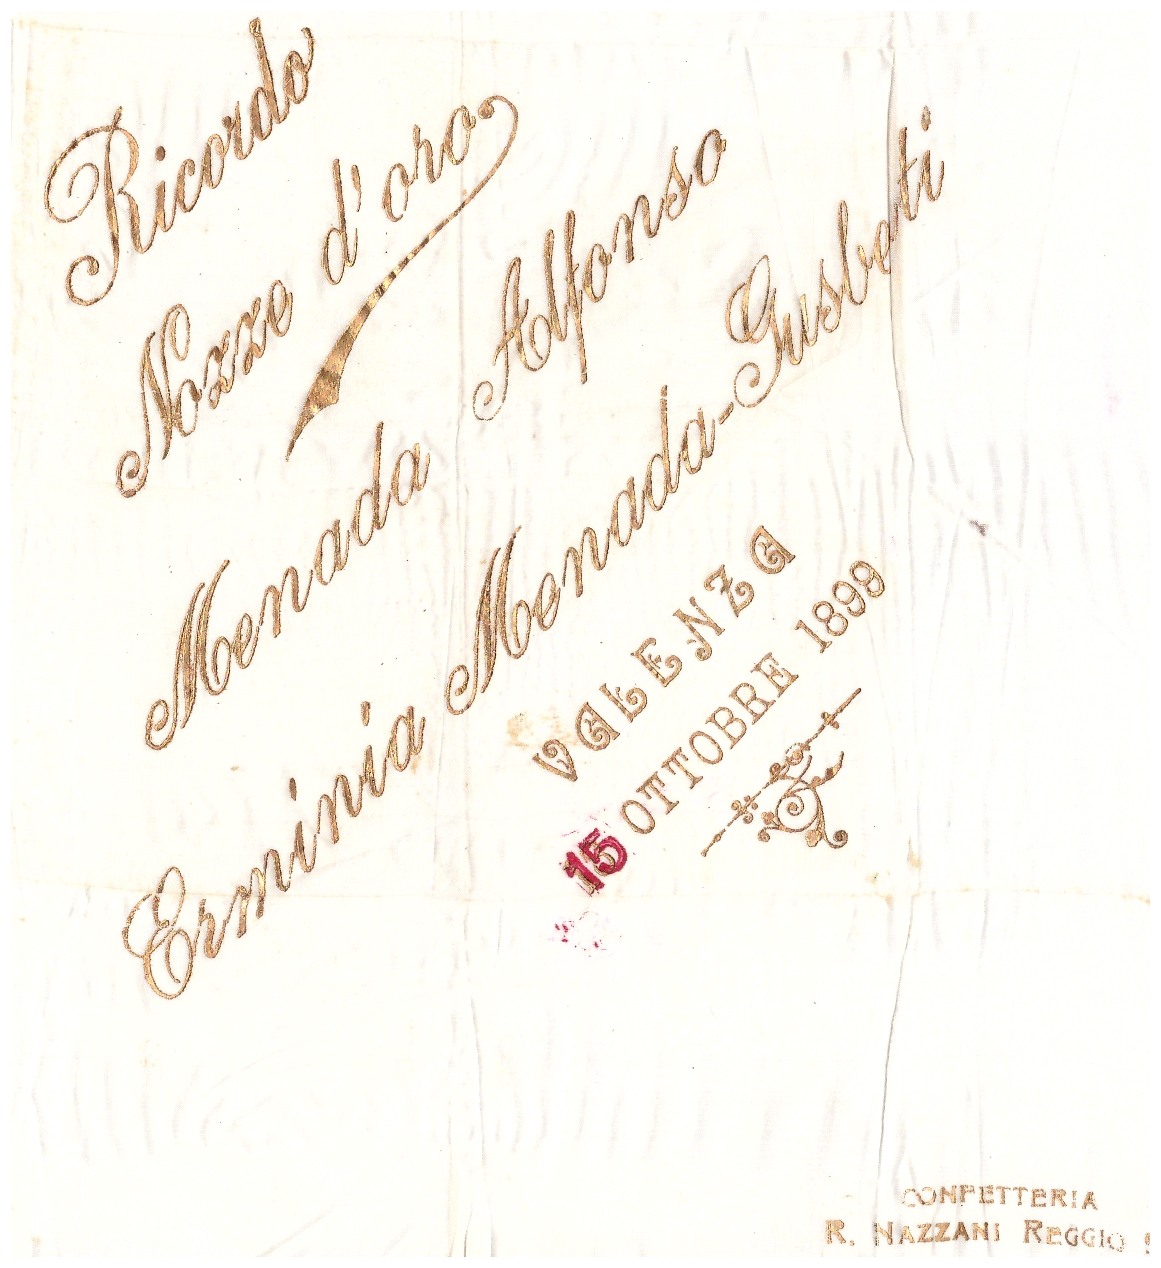 Ricordo
Nozze d'oro
Menada Alfonso
Erminia Menada-Gusberti
VALENZA
15 OTTOBRE 1899
CONFETTERIA
R. NAZZANI REGGIO